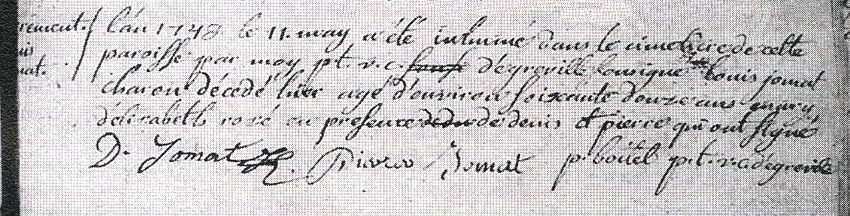 rement. l'an 1748. le 11. may a été inhumé dans le cimetiere de cette
uis paroisse par moy pt. v. c. d'egreville sousigné louis jomat
mat. charon décedé hier agé d'environ soixante douze ans
d'elizabeth rosé en presence de denis et pierre qui ont signé
D. Jomat pierre Jomat p. boitel p.t. v. c. d'egreville